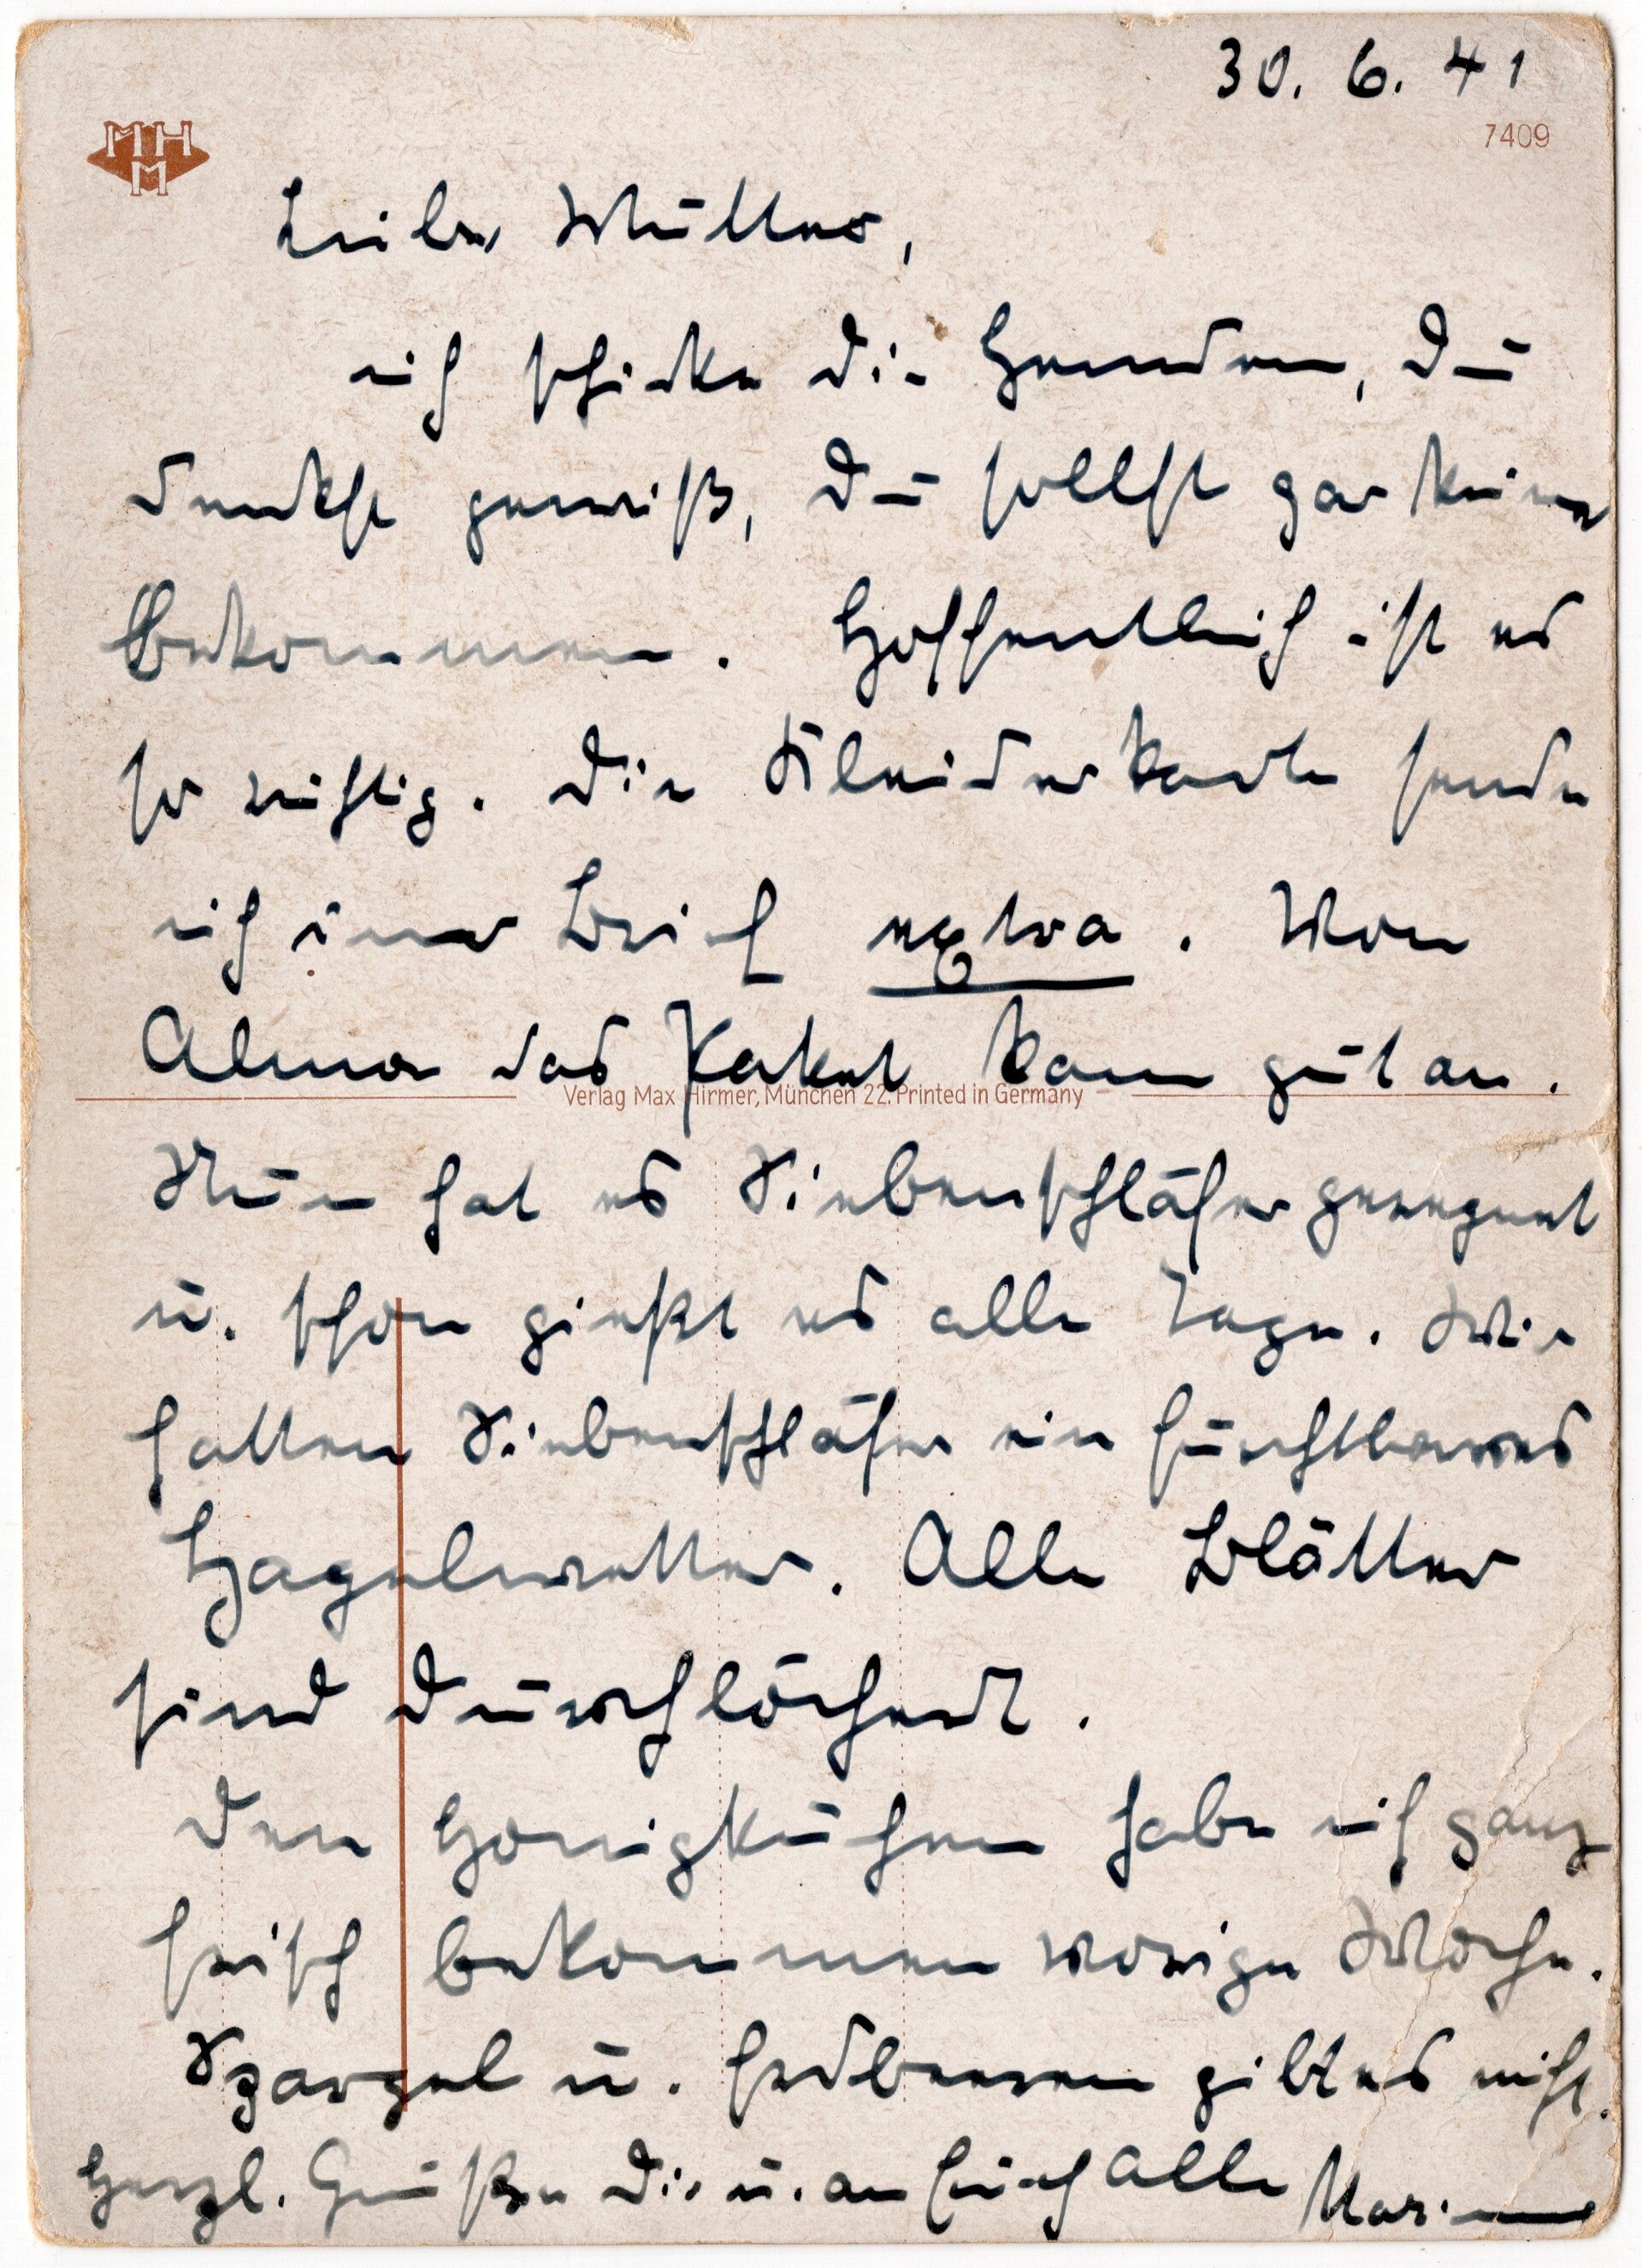 30. 6. 41
7409
MHM
Liebe Mutter,
ich schicke die Hemden, Du
denkst gewiß, Du sollst gar keine
bekommen. Hoffentlich ist es
so richtig. Die Kleiderkarte sende
ich im Brief extra. Von
Alma das Paket kam gut an.
Nun hat es Siebenschläfer geregnet
u. schon gießt es alle Tage. Wir
hatten Siebenschläfer ein furchtbares
Hagelwetter. Alle Blätter
sind durchlöchert.
Den Honigkuchen habe ich ganz
frisch bekommen vorige Woche.
Spargel u. Erdbeeren gibt es nicht.
Herzl. Grüße Dir u. an Euch alle
Verlag Max Hirmer, München 22. Printed in Germany